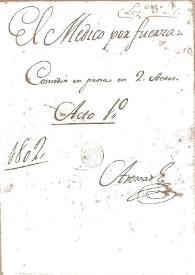 El Médico por fuerza.
Comedia en prosa en 2. Actos.
Acto 1.º
1802.